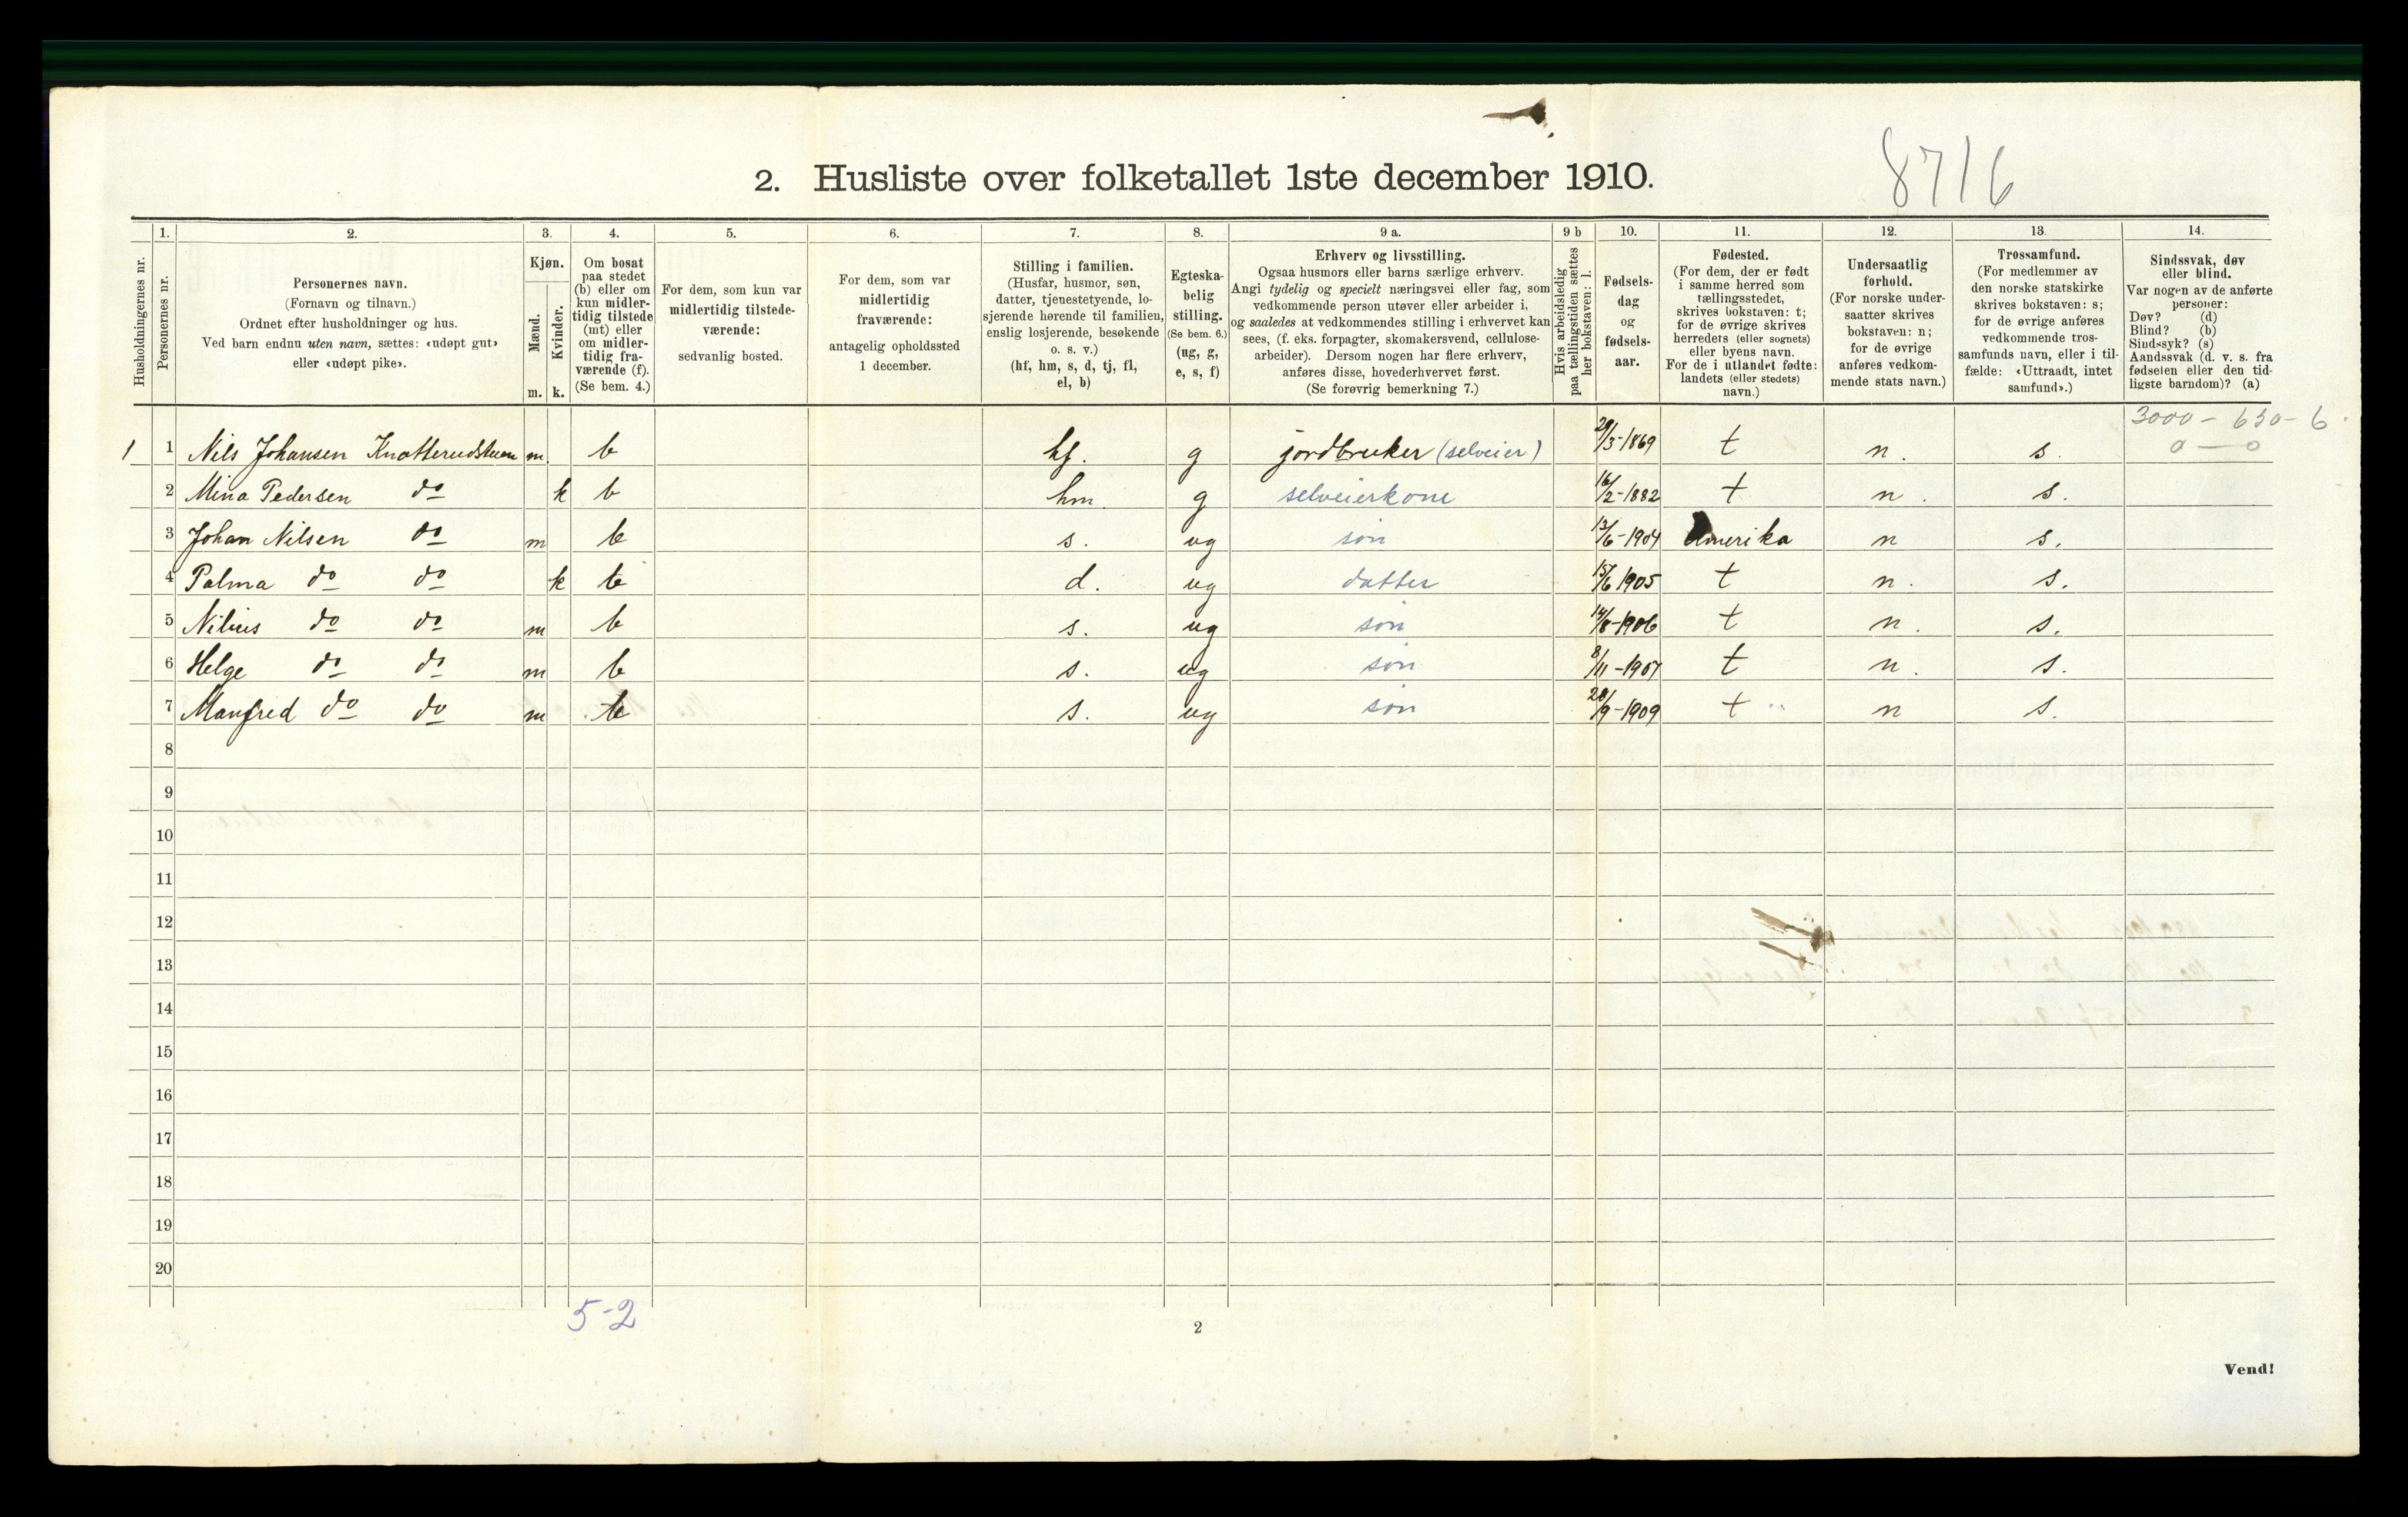 8716
2. Husliste over folketallet 1ste december 1910.
Husholdningernes nr.
1. Personernes nr.
2. Personernes navn. (Fornavn og tilnavn.) Ordnet efter husholdninger og hus. Ved barn endnu uten navn, sættes: «udøpt gut» eller «udøpt pike».
3. Kjøn. Mænd. m. Kvinder. k.
4. Om bosat paa stedet (b) eller om kun midlertidig tilstede (mt) eller om midlertidig fraværende (f). (Se bem. 4.)
5. For dem, som kun var midlertidig tilstedeværende: sedvanlig bosted.
6. For dem, som var midlertidig fraværende: antagelig opholdssted 1 december.
7. Stilling i familien. (Husfar, husmor, søn, datter, tjenestetyende, losjerende hørende til familien, enslig losjerende, besøkende o. s. v.) (hf, hm, s, d, tj, fl, el, b)
8. Egteskabelig stilling. (Se bem. 6.) (ug, g, e, s, f)
9 a. Erhverv og livsstilling. Ogsaa husmors eller barns særlige erhverv. Angi tydelig og specielt næringsvei eller fag, som vedkommende person utøver eller arbeider i, og saaledes at vedkommendes stilling i erhvervet kan sees, (f. eks. forpagter, skomakersvend, cellulosearbeider). Dersom nogen har flere erhverv, anføres disse, hovederhvervet først. (Se forøvrig bemerkning 7.)
9 b Hvis arbeidsledig paa tællingstiden sættes her bokstaven: l.
10. Fødselsdag og fødselsaar.
11. Fødested. (For dem, der er født i samme herred som tællingsstedet, skrives bokstaven: t; for de øvrige skrives herredets (eller sognets) eller byens navn. For de i utlandet fødte: landets (eller stedets) navn.)
12. Undersaatlig forhold. (For norske undersaatter skrives bokstaven: n; for de øvrige anføres vedkommende stats navn.)
13. Trossamfund. (For medlemmer av den norske statskirke skrives bokstaven: s; for de øvrige anføres vedkommende trossamfunds navn, eller i tilfælde: «Uttraadt, intet samfund».)
14. Sindssvak, døv eller blind. Var nogen av de anførte personer: Døv? (d) Blind? (b) Sindssyk? (s) Aandssvak (d. v. s. fra fødselen eller den tidligste barndom)? (a)
3000 - 630 - 6
0 — 0
1 1 Nils Johansen Knatterudstuen m b hf. g jordbruker (selveier) 29/3-1869 t n. s.
2 Mina Pedersen do k b hm. g selveierkone 16/2-1882 t n. s.
3 Johan Nilsen do m b s. ug søn 13/6-1904 Amerika n s.
4 Palma do do k b d. ug datter 15/6 1905 t n. s.
5 Nilius do do m b s. ug søn 14/8-1906 t n. s.
6 Helge do do m b s. ug søn 8/11-1907 t n. s.
7 Manfred do do m b s. ug søn 28/9-1909 t n s.
8
9
10
11
12
13
14
15
16
17
18
19
20
5-2
2
Vend!